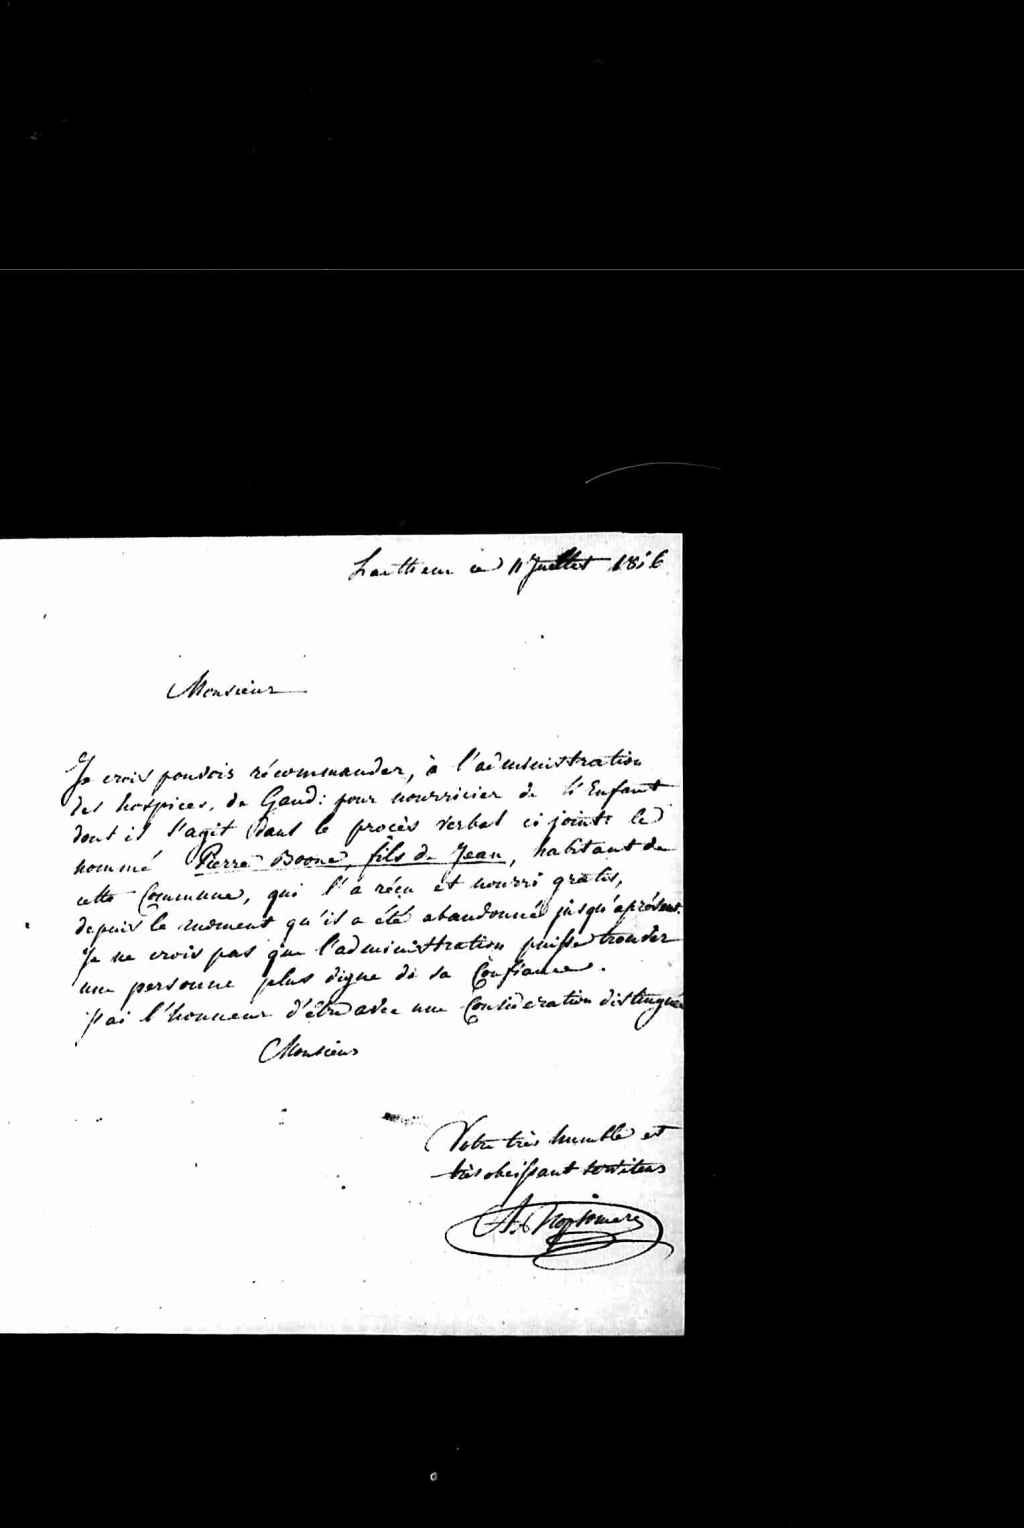 ce 11 Juillet 1816
Monsieur
Je crois pouvoir récommander, à l'administration
des hospices, de Gand: pour nourricier de l'Enfant
dont il s'agit dans le procès verbal ci joint: le
nommé Pierre Boone, fils de Jean, habitant de
cette Commune, qui l'a réçu et nourri gratis,
depuis le moment qu'il a été abandonné jusqu'aprésent.
Je ne crois pas que l'administration puisse trouver
une personne plus digne de sa Confiance.
J'ai l'honneur d'être avec une Consideration distinguée
Monsieur
Votre très humble et
très obeissant serviteur